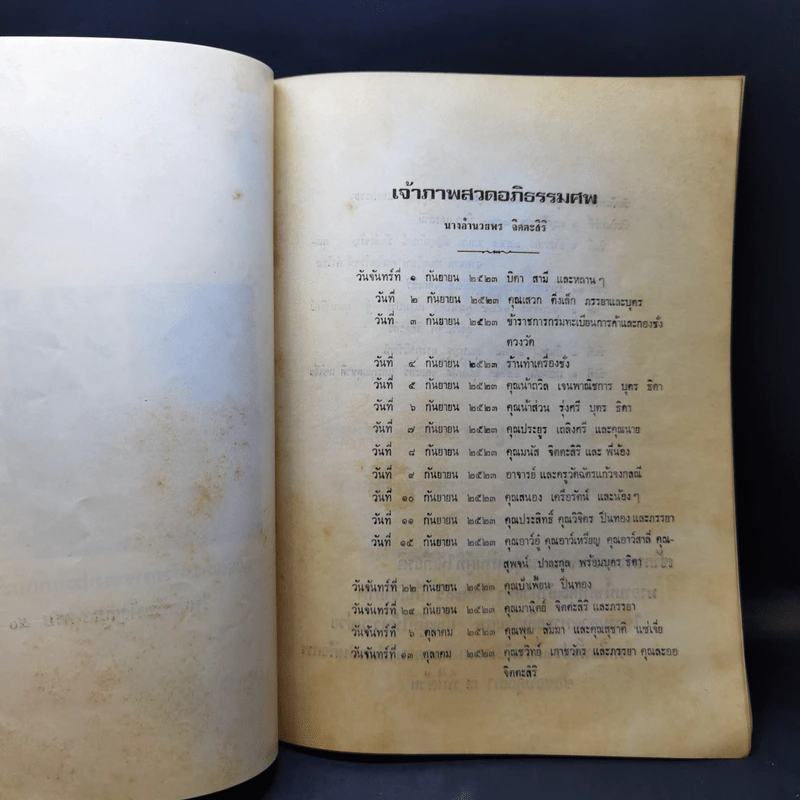 เจ้าภาพสวดอภิธรรมศพ
นางอำนวยพร จิตตะสิริ
วันจันทร์ที่ ๑ กันยายน ๒๕๒๓ บิดา สามี และหลาน ๆ
วันที่ ๒ กันยายน ๒๕๒๓ คุณเสวก ติ่งเล็ก ภรรยาและบุตร
วันที่ ๓ กันยายน ๒๕๒๓ ข้าราชการกรมทะเบียนการค้าและกองชั่ง
ตวงวัด
วันที่ ๔ กันยายน ๒๕๒๓ ร้านทำเครื่องชั่ง
วันที่ ๕ กันยายน ๒๕๒๓ คุณน้าถวิล เจนพาณิชการ บุตร ธิดา
วันที่ ๖ กันยายน ๒๕๒๓ คุณน้าส่วน รุ่งศรี บุตร ธิดา
วันที่ ๗ กันยายน ๒๕๒๓ คุณประยูร เถลิงศรี และคุณนาย
วันที่ ๘ กันยายน ๒๕๒๓ คุณมนัส จิตตะสิริ และ พี่น้อง
วันที่ ๙ กันยายน ๒๕๒๓ อาจารย์ และครูวัดฉัตรแก้วจงกลณี
วันที่ ๑๐ กันยายน ๒๕๒๓ คุณสนอง เครือรัตน์ และน้อง ๆ
วันที่ ๑๑ กันยายน ๒๕๒๓ คุณประสิทธิ์ คุณวิจิตร ปิ่นทอง และภรรยา
วันที่ ๑๕ กันยายน ๒๕๒๓ คุณอาว์อู๋ คุณอาว์เหรียญ คุณอาว์สาลี่ คุณ-
สุพจน์ ปาละกูล พร้อมบุตร ธิดา
วันจันทร์ที่ ๒๒ กันยายน ๒๕๒๓ คุณบำเพ็ญ ปิ่นทอง
วันจันทร์ที่ ๒๙ กันยายน ๒๕๒๓ คุณมานิตย์ จิตตะสิริ และภรรยา
วันจันทร์ที่ ๖ ตุลาคม ๒๕๒๓ คุณพูน สัมมา และคุณสุชาติ แซ่เจี่ย
วันจันทร์ที่ ๑๓ ตุลาคม ๒๕๒๓ คุณชวิทย์ เกาชวัตร และภรรยา คุณละออ
จิตตะสิริ